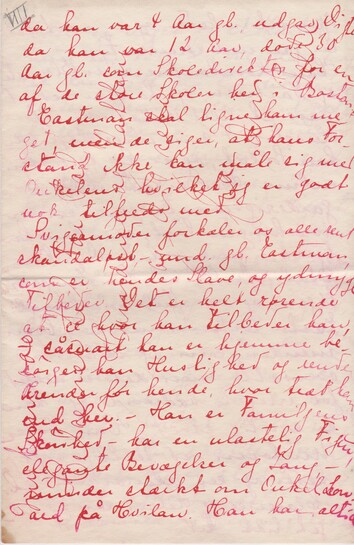 VIII
da han var 4 Aar gl. udgav Digte
da han var 12 Aar, døde 30
Aar gl. som Skoledirektør for en
af de store Skoler her i Boston
Eastman skal ligne ham me
get, men de siger, at hans For
stand ikke kan maale sig med
Onkelens, hvilket jeg er godt
nok tilfreds med
Svigermoder forkæler og
gl. Eastman,
som er hendes Slave, og ydmyge
Tilbeder. Det er helt rørende
at se hvor han tilbeder han,
saasnart han er hjemme be
sørger han Huslighed og
Ærender for hende, hvor træt han
end er. – Han er Familjens
Skønhed – har en ulastelig Figur
elegante Bevægelser og Gang –
minder stærkt om Onkel
paa Hvilan. Han har altid